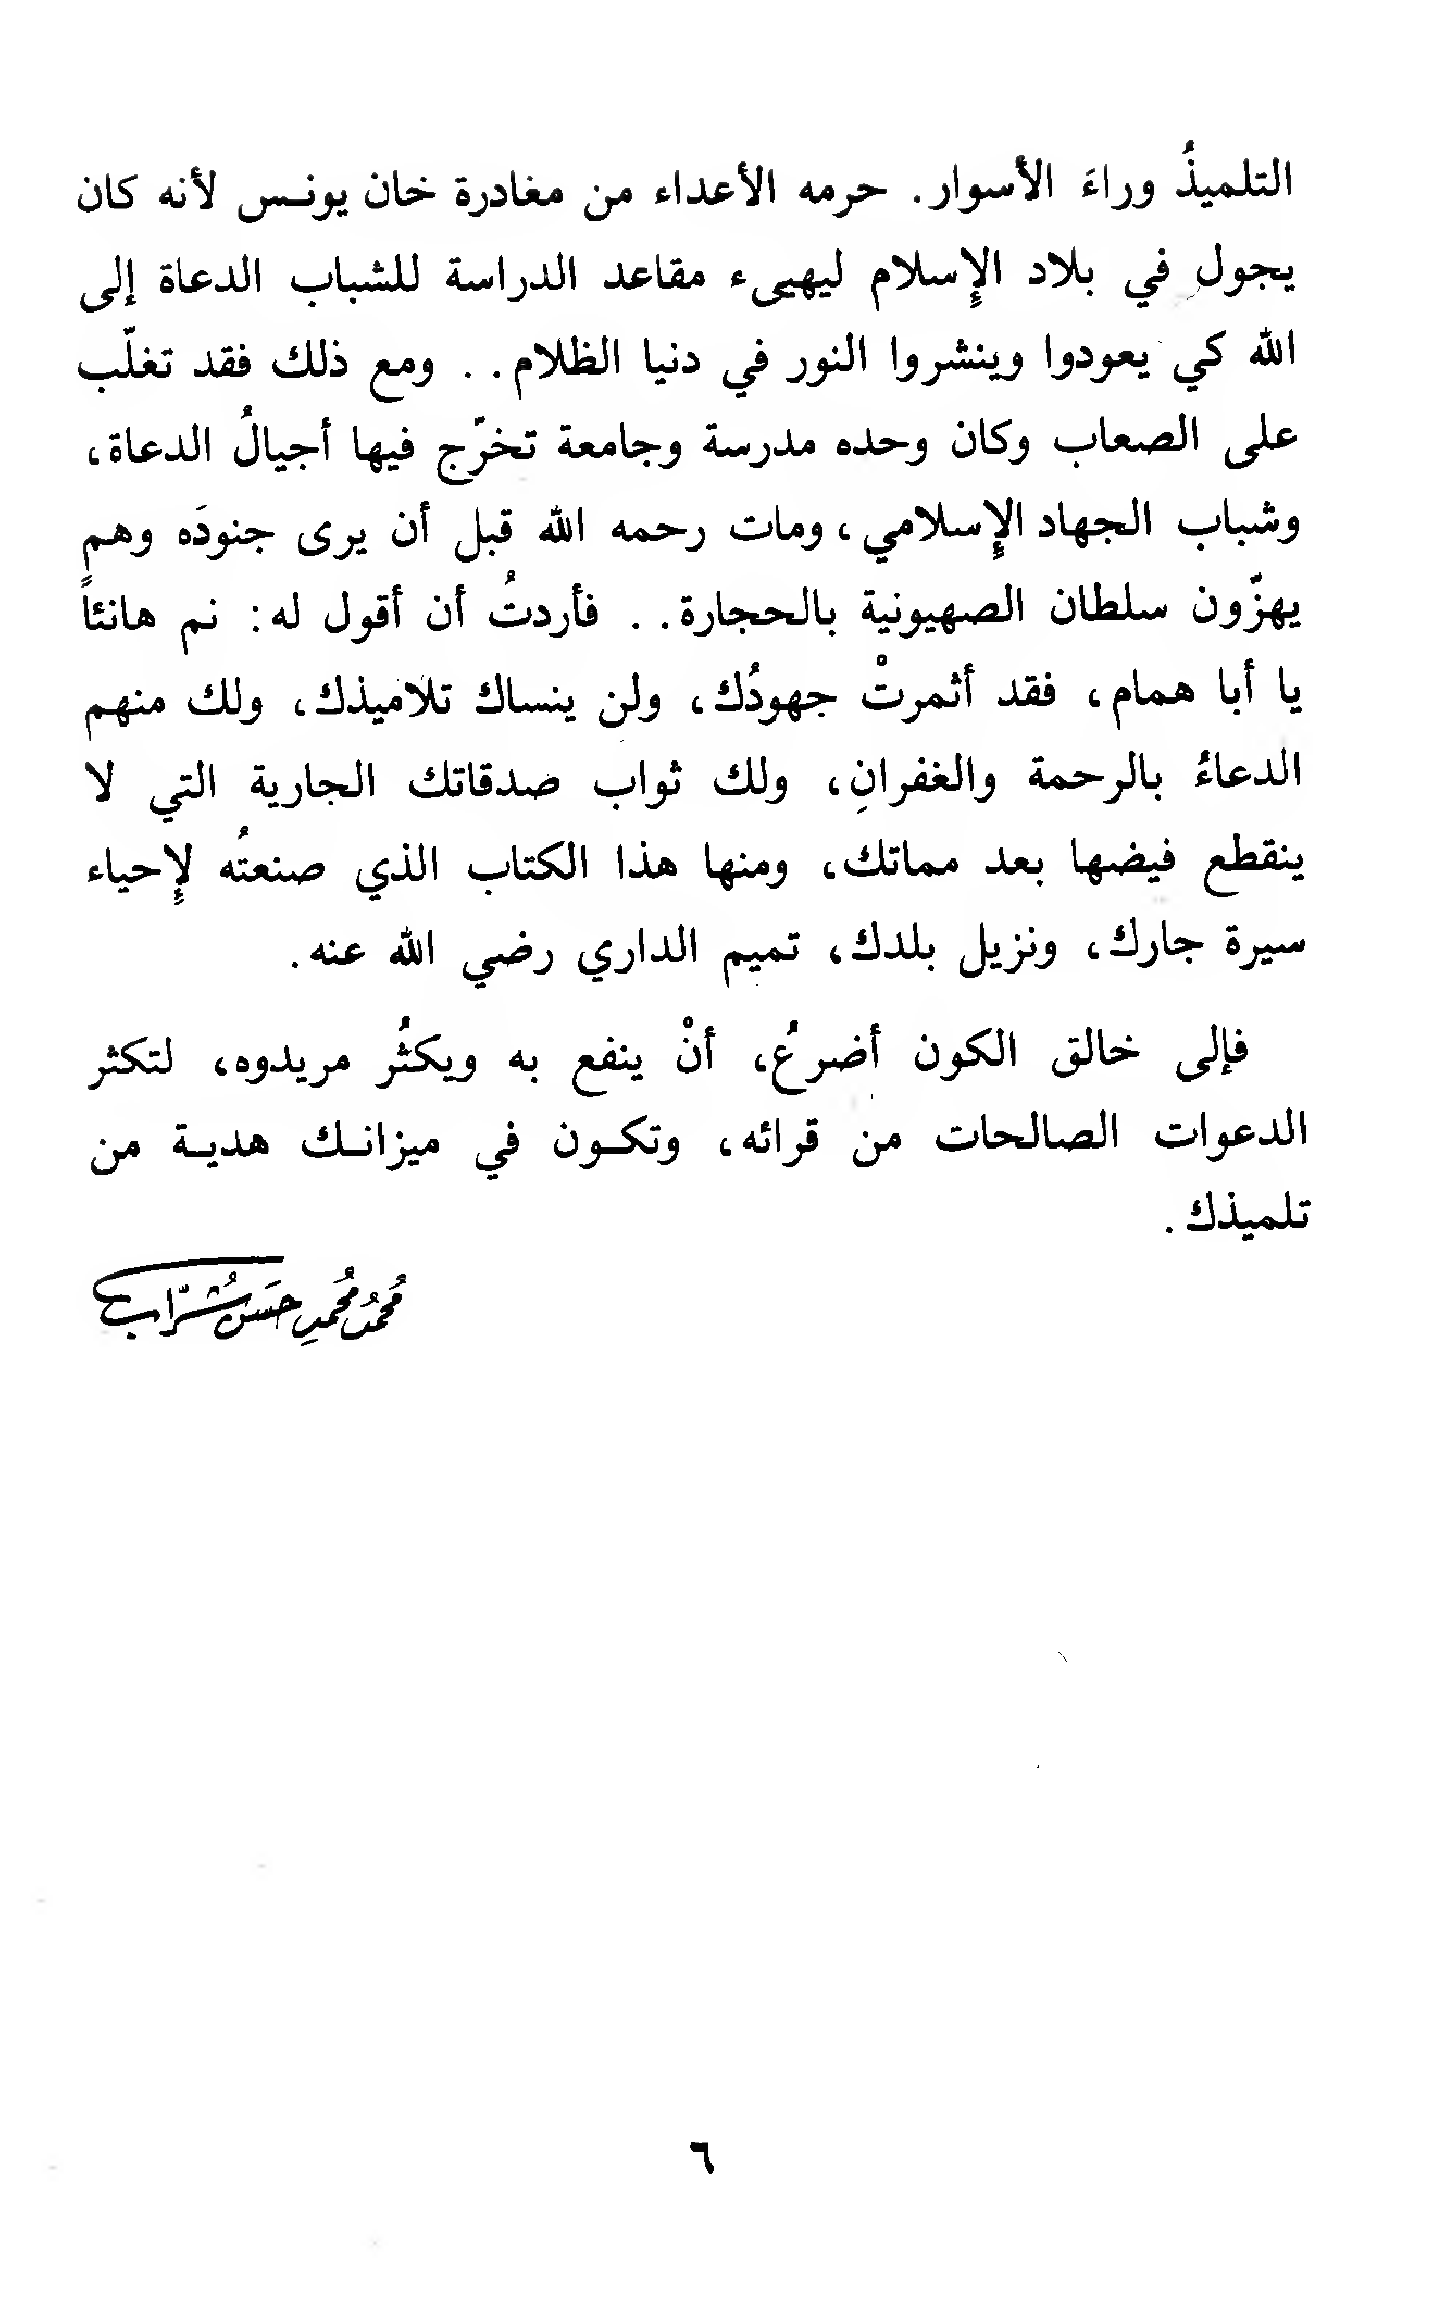 التلميذُ وراءَ الأسوار. حرمه الأعداء من مغادرة خان يونـس لأنه كان
يجول في بلاد الإِسلام ليهيىء مقاعد الدراسة للشباب الدعاة إلى
الله كي يعودوا وينشروا النور في دنيا الظلام.. ومع ذلك فقد تغلّب
على الصعاب وكان وحده مدرسة وجامعة تخرّج فيها أجيالُ الدعاة،
وشباب الجهاد الإِسلامي، ومات رحمه الله قبل أن يرى جنودَه وهم
يهزّون سلطان الصهيونية بالحجارة.. فأردتُ أن أقول له: نم هانئاً
يا أبا همام، فقد أثمرتْ جهودُك، ولن ينساك تلاميذك، ولك منهم
الدعاءُ بالرحمة والغفرانِ، ولك ثواب صدقاتك الجارية التي لا
ينقطع فيضها بعد مماتك، ومنها هذا الكتاب الذي صنعتُه لإِحياء
سيرة جارك، ونزيل بلدك، تميم الداري رضي الله عنه.
فإلى خالق الكون أضرعُ، أنْ ينفع به ويكثُر مريدوه، لتكثر
الدعوات الصالحات من قرائه، وتكـون في ميزانـك هديـة من
تلميذك.
مُحمَّدُ مُحمَّدِ حَسَن شُرَّاب
٦